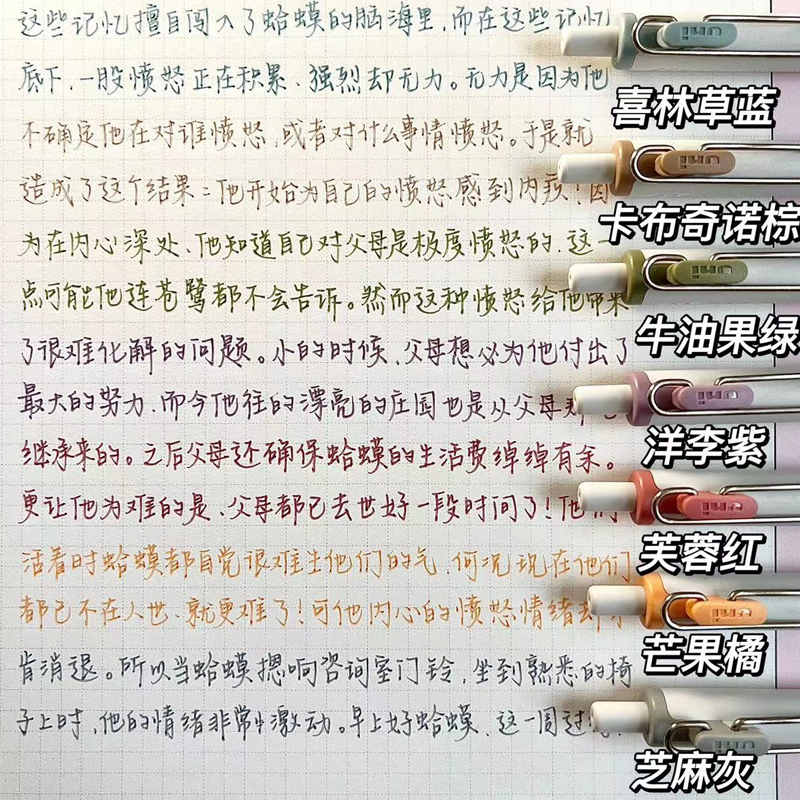 这些记忆擅自闯入了蛤蟆的脑海里,而在这些记忆
底下,一股愤怒正在积累、强烈却无力。无力是因为他
不确定他在对谁愤怒,或者对什么事情愤怒。于是就
造成了这个结果:他开始为自己的愤怒感到内疚!因
为在内心深处,他知道自己对父母是极度愤怒的,这一
点可能他连苍鹭都不会告诉。然而这种愤怒给他带来
了很难化解的问题。小的时候,父母想必为他付出了
最大的努力,而今他住的漂亮的庄园也是从父母那
继承来的。之后父母还确保蛤蟆的生活费绰绰有余。
更让他为难的是,父母都已去世好一段时间了!他们
活着时蛤蟆都自觉很难生他们的气,何况现在他们
都已不在人世,就更难了!可他内心的愤怒情绪却
肯消退。所以当蛤蟆摁响咨询室门铃,坐到熟悉的椅
子上时,他的情绪非常激动。早上好蛤蟆,这一周过
uni
喜林草蓝
uni
卡布奇诺棕
uni
牛油果绿
uni
洋李紫
uni
芙蓉红
uni
芒果橘
uni
芝麻灰